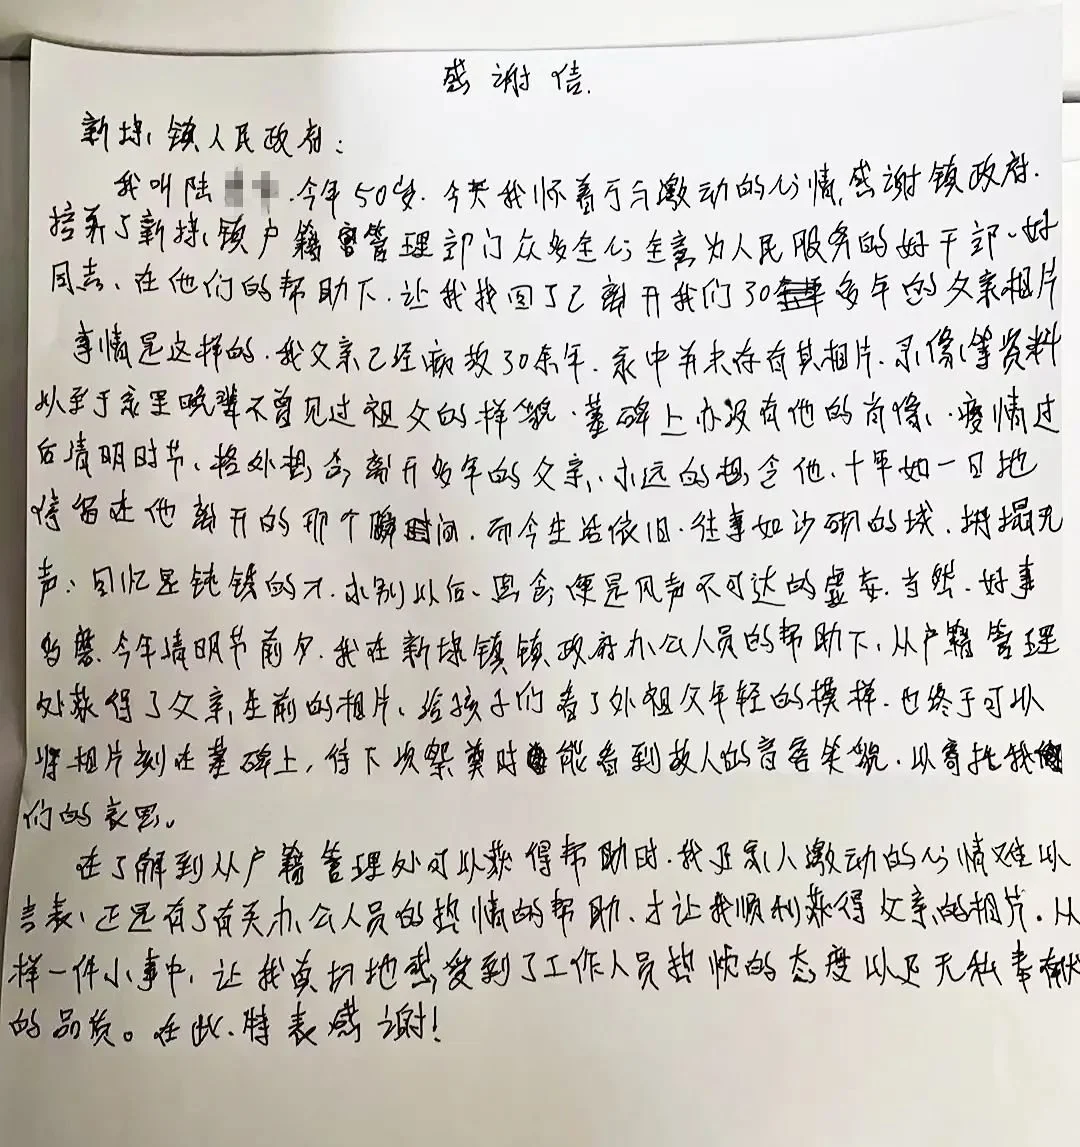 感谢信.
新埭镇人民政府:
我叫陆 .今年50岁.今天我怀着万分激动的心情,感谢镇政府.
培养了新埭镇户籍管理部门众多全心全意为人民服务的好干部、好
同志、在他们的帮助下.让我找回了已离开我们30多年的父亲相片
事情是这样的.我父亲已经病故30余年.家中并未存有其相片.录像等资料
以至于家里晚辈不曾见过祖父的样貌.墓碑上亦没有他的肖像、疫情过
后清明时节、格外想念离开多年的父亲、永远的想念他、十年如一日地
停留在他离开的那个瞬间.而今生活依旧.往事如沙砌的城.坍塌无
声、回忆是钝锈的刀.永别以后、思念便是风声不可达的虚妄.当然.好事
多磨.今年清明节前夕.我在新埭镇镇政府办公人员的帮助下、从户籍管理
处获得了父亲生前的相片、给孩子们看了外祖父年轻的模样.也终于可以
将相片刻在墓碑上,待下次祭奠时能看到故人的音容笑貌.以寄托我
们的哀思。
在了解到从户籍管理处可以获得帮助时.我及家人激动的心情难以
言表、正是有了有关办公人员的热情的帮助、才让我顺利获得父亲的相片.从
样一件小事中,让我真切地感受到了工作人员热忱的态度以及无私奉献
的品质。在此.特表感谢!